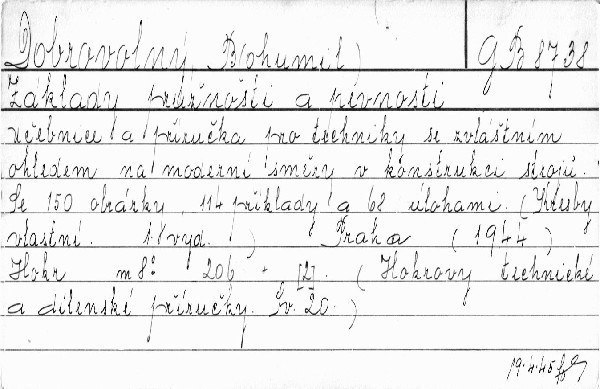 Dobrovolný, B(ohumil) GB 8738
Základy pružnosti a pevnosti
učebnice a příručka pro techniky se zvláštním
ohledem na moderní směry v konstrukci strojů.
Se 150 obrázky, 114 příklady a 62 úlohami. (Kresby
vlastní. 1. vyd.) Praha (1944)
Hokr m 8° 206 + [2]. (Hokrovy technické
a dílenské příručky. Sv. 20.)
19.4.45